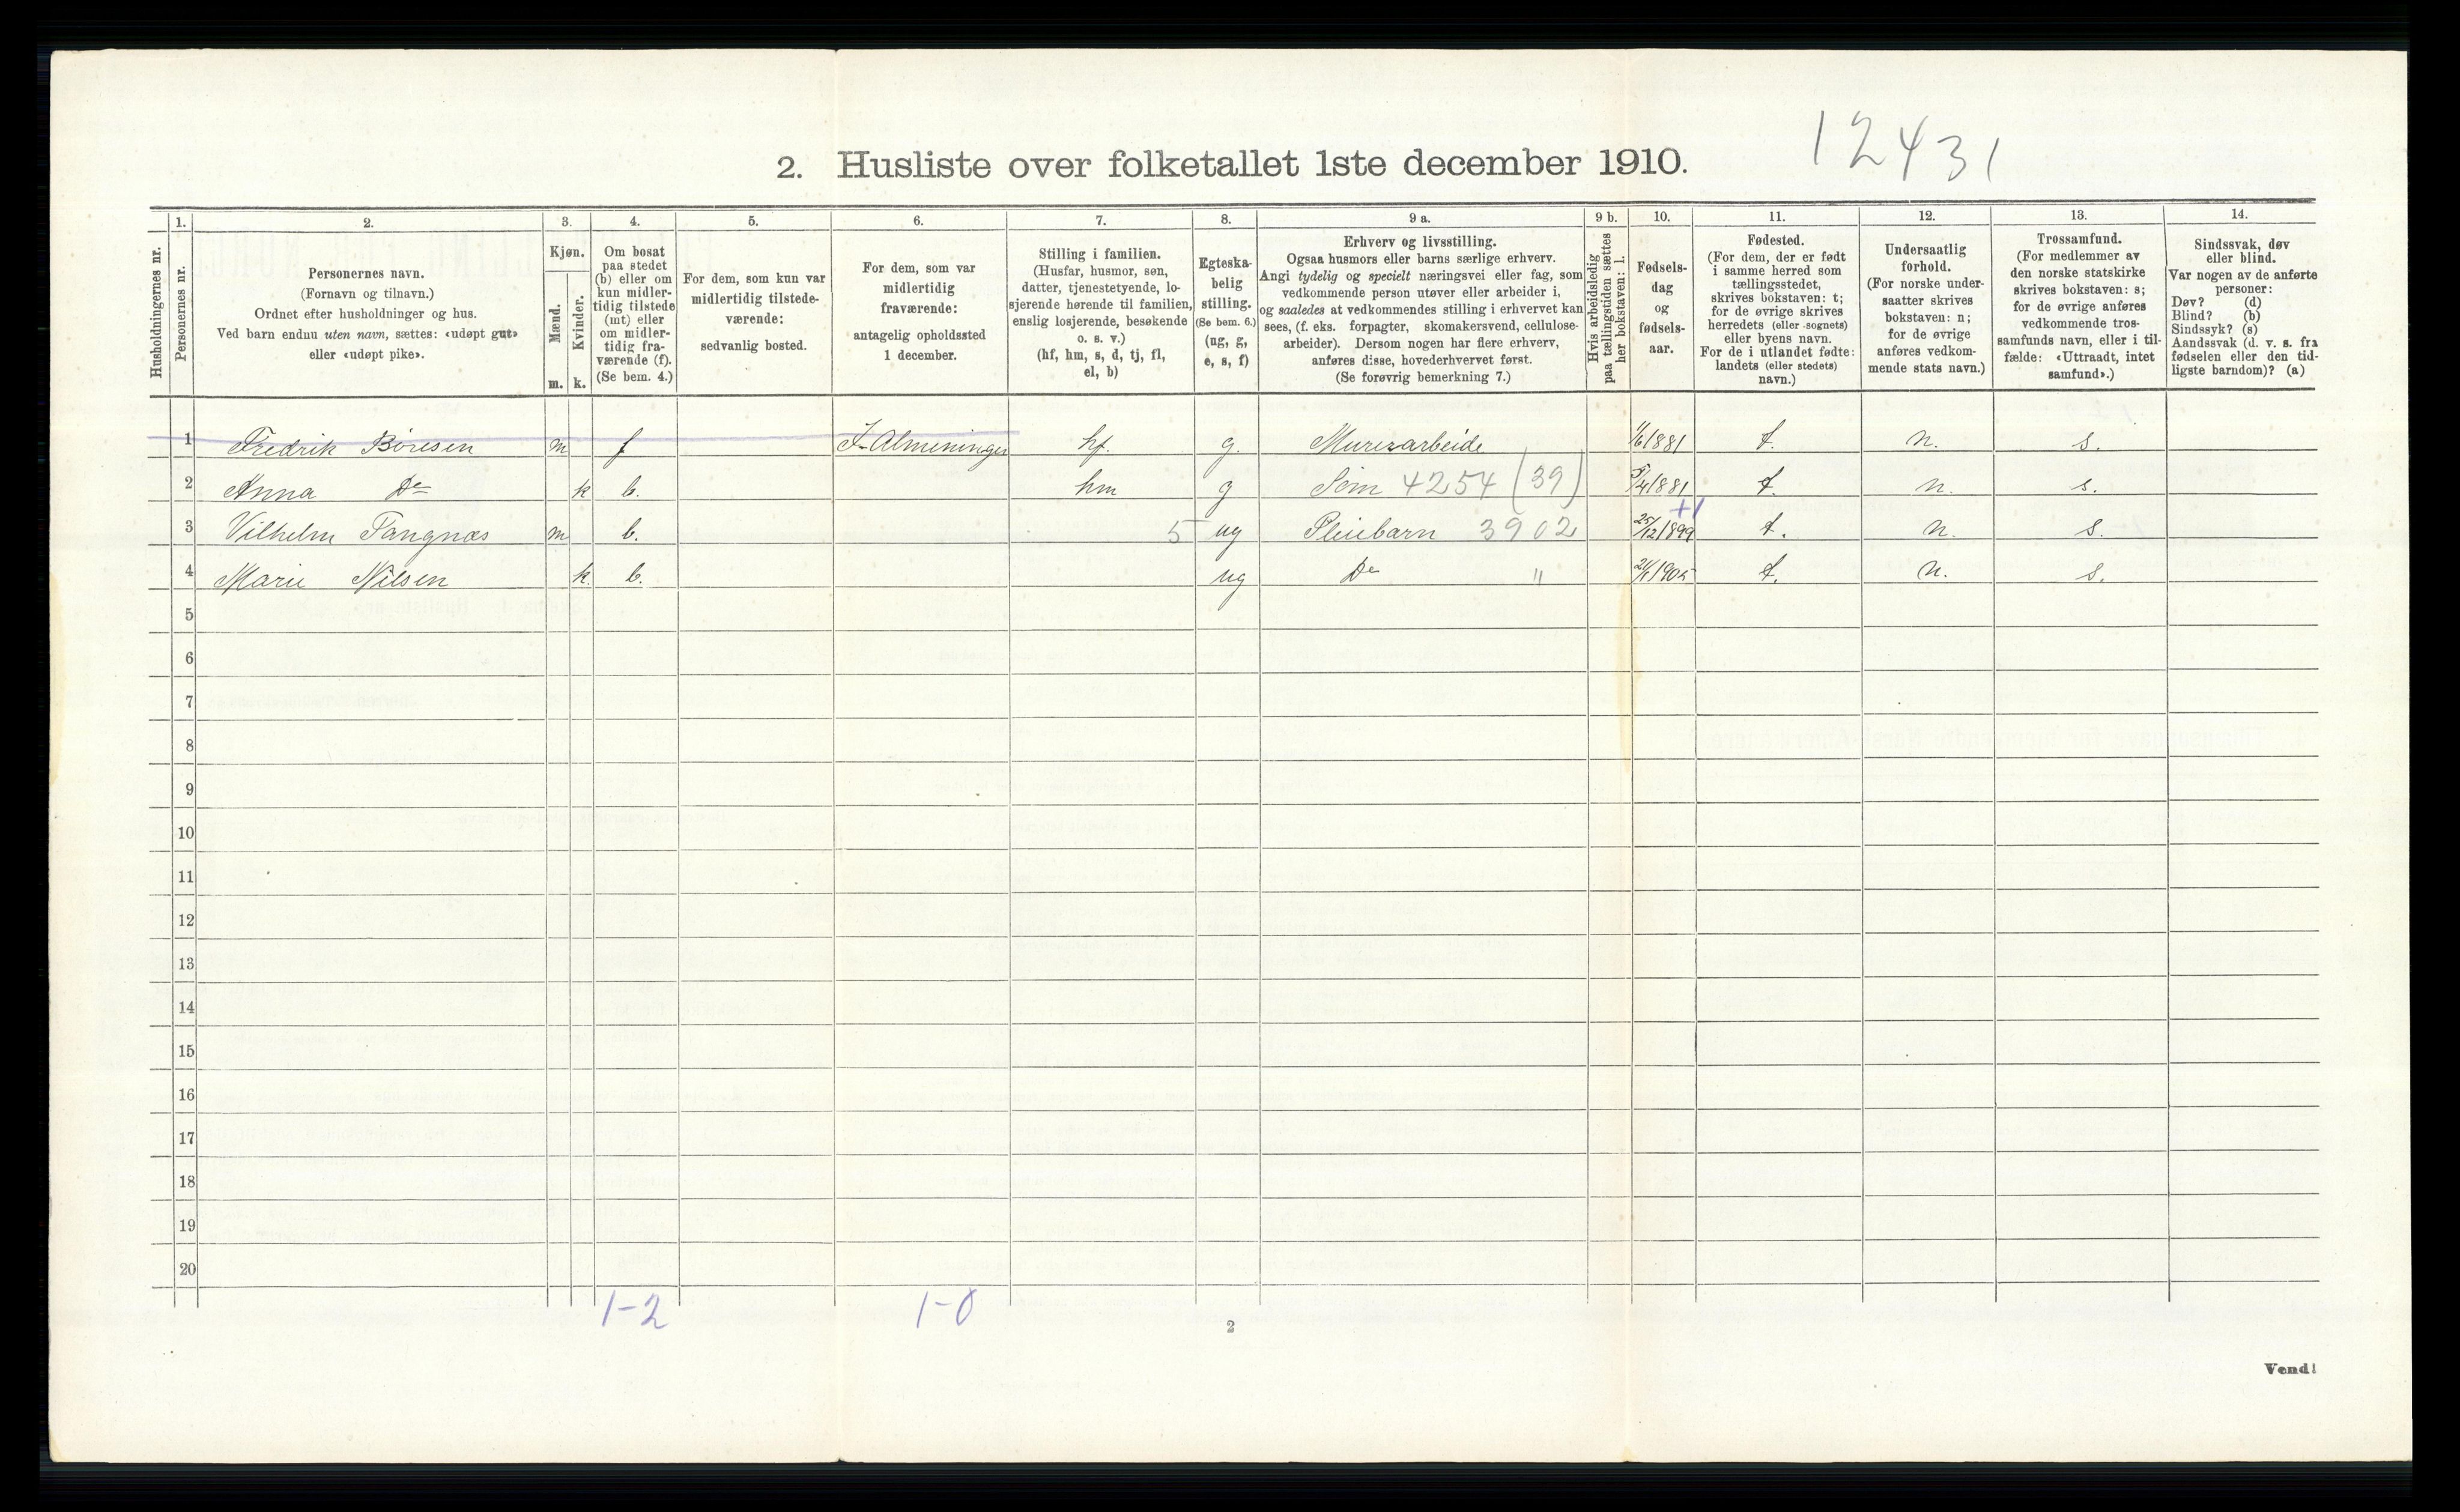 12431
2. Husliste over folketallet 1ste december 1910.
Husholdningernes nr.
1.
Personernes nr.
2.
Personernes navn.
(Fornavn og tilnavn.)
Ordnet efter husholdninger og hus.
Ved barn endnu uten navn, sættes: «udøpt gut»
eller «udøpt pike».
3.
Kjøn.
Mænd.
Kvinder.
m. k.
4.
Om bosat
paa stedet
(b) eller om
kun midler-
tidig tilstede
(mt) eller
om midler-
tidig fra-
værende (f).
(Se bem. 4.)
5.
For dem, som kun var
midlertidig tilstede-
værende:
sedvanlig bosted.
6.
For dem, som var
midlertidig
fraværende:
antagelig opholdssted
1 december.
7.
Stilling i familien.
(Husfar, husmor, søn,
datter, tjenestetyende, lo-
sjerende hørende til familien,
enslig losjerende, besøkende
o. s. v.)
(hf, hm, s, d, tj, fl,
el, b)
8.
Egteska-
belig
stilling.
(Se bem. 6.)
(ug, g,
e, s, f)
9 a.
Erhverv og livsstilling.
Ogsaa husmors eller barns særlige erhverv.
Angi tydelig og specielt næringsvei eller fag, som
vedkommende person utøver eller arbeider i,
og saaledes at vedkommendes stilling i erhvervet kan
sees, (f. eks. forpagter, skomakersvend, cellulose-
arbeider). Dersom nogen har flere erhverv,
anføres disse, hovederhvervet først.
(Se forøvrig bemerkning 7.)
9 b.
Hvis arbeidsledig
paa tællingstiden sættes
her bokstaven: l.
10.
Fødsels-
dag
og
fødsels-
aar.
11.
Fødested.
(For dem, der er født
i samme herred som
tællingsstedet,
skrives bokstaven: t;
for de øvrige skrives
herredets (eller sognets)
eller byens navn.
For de i utlandet fødte:
landets (eller stedets)
navn.)
12.
Undersaatlig
forhold.
(For norske under-
saatter skrives
bokstaven: n;
for de øvrige
anføres vedkom-
mende stats navn.)
13.
Trossamfund.
(For medlemmer av
den norske statskirke
skrives bokstaven: s;
for de øvrige anføres
vedkommende tros-
samfunds navn, eller i til-
fælde: «Uttraadt, intet
samfund».)
14.
Sindssvak, døv
eller blind.
Var nogen av de anførte
personer:
Døv? (d)
Blind? (b)
Sindssyk? (s)
Aandssvak (d. v. s. fra
fødselen eller den tid-
ligste barndom)? (a)
1 Fredrik Børesen m f Almeninger hf. g. Murerarbeide 1/6 1881 t. n. s.
2 Anna Do k b. hm g Søm 4254 (39) 5/4 1881 t. n. s.
+1
3 Vilhelm Tangnæs m b. 5 ug Pleiebarn 3902 25/12 1899 t. n. s.
4 Marie Nilsen k. b. ug Do " 1905 t. n. s.
5
6
7
8
9
10
11
12
13
14
15
16
17
18
19
20
1-2 1-0
2
Vend!